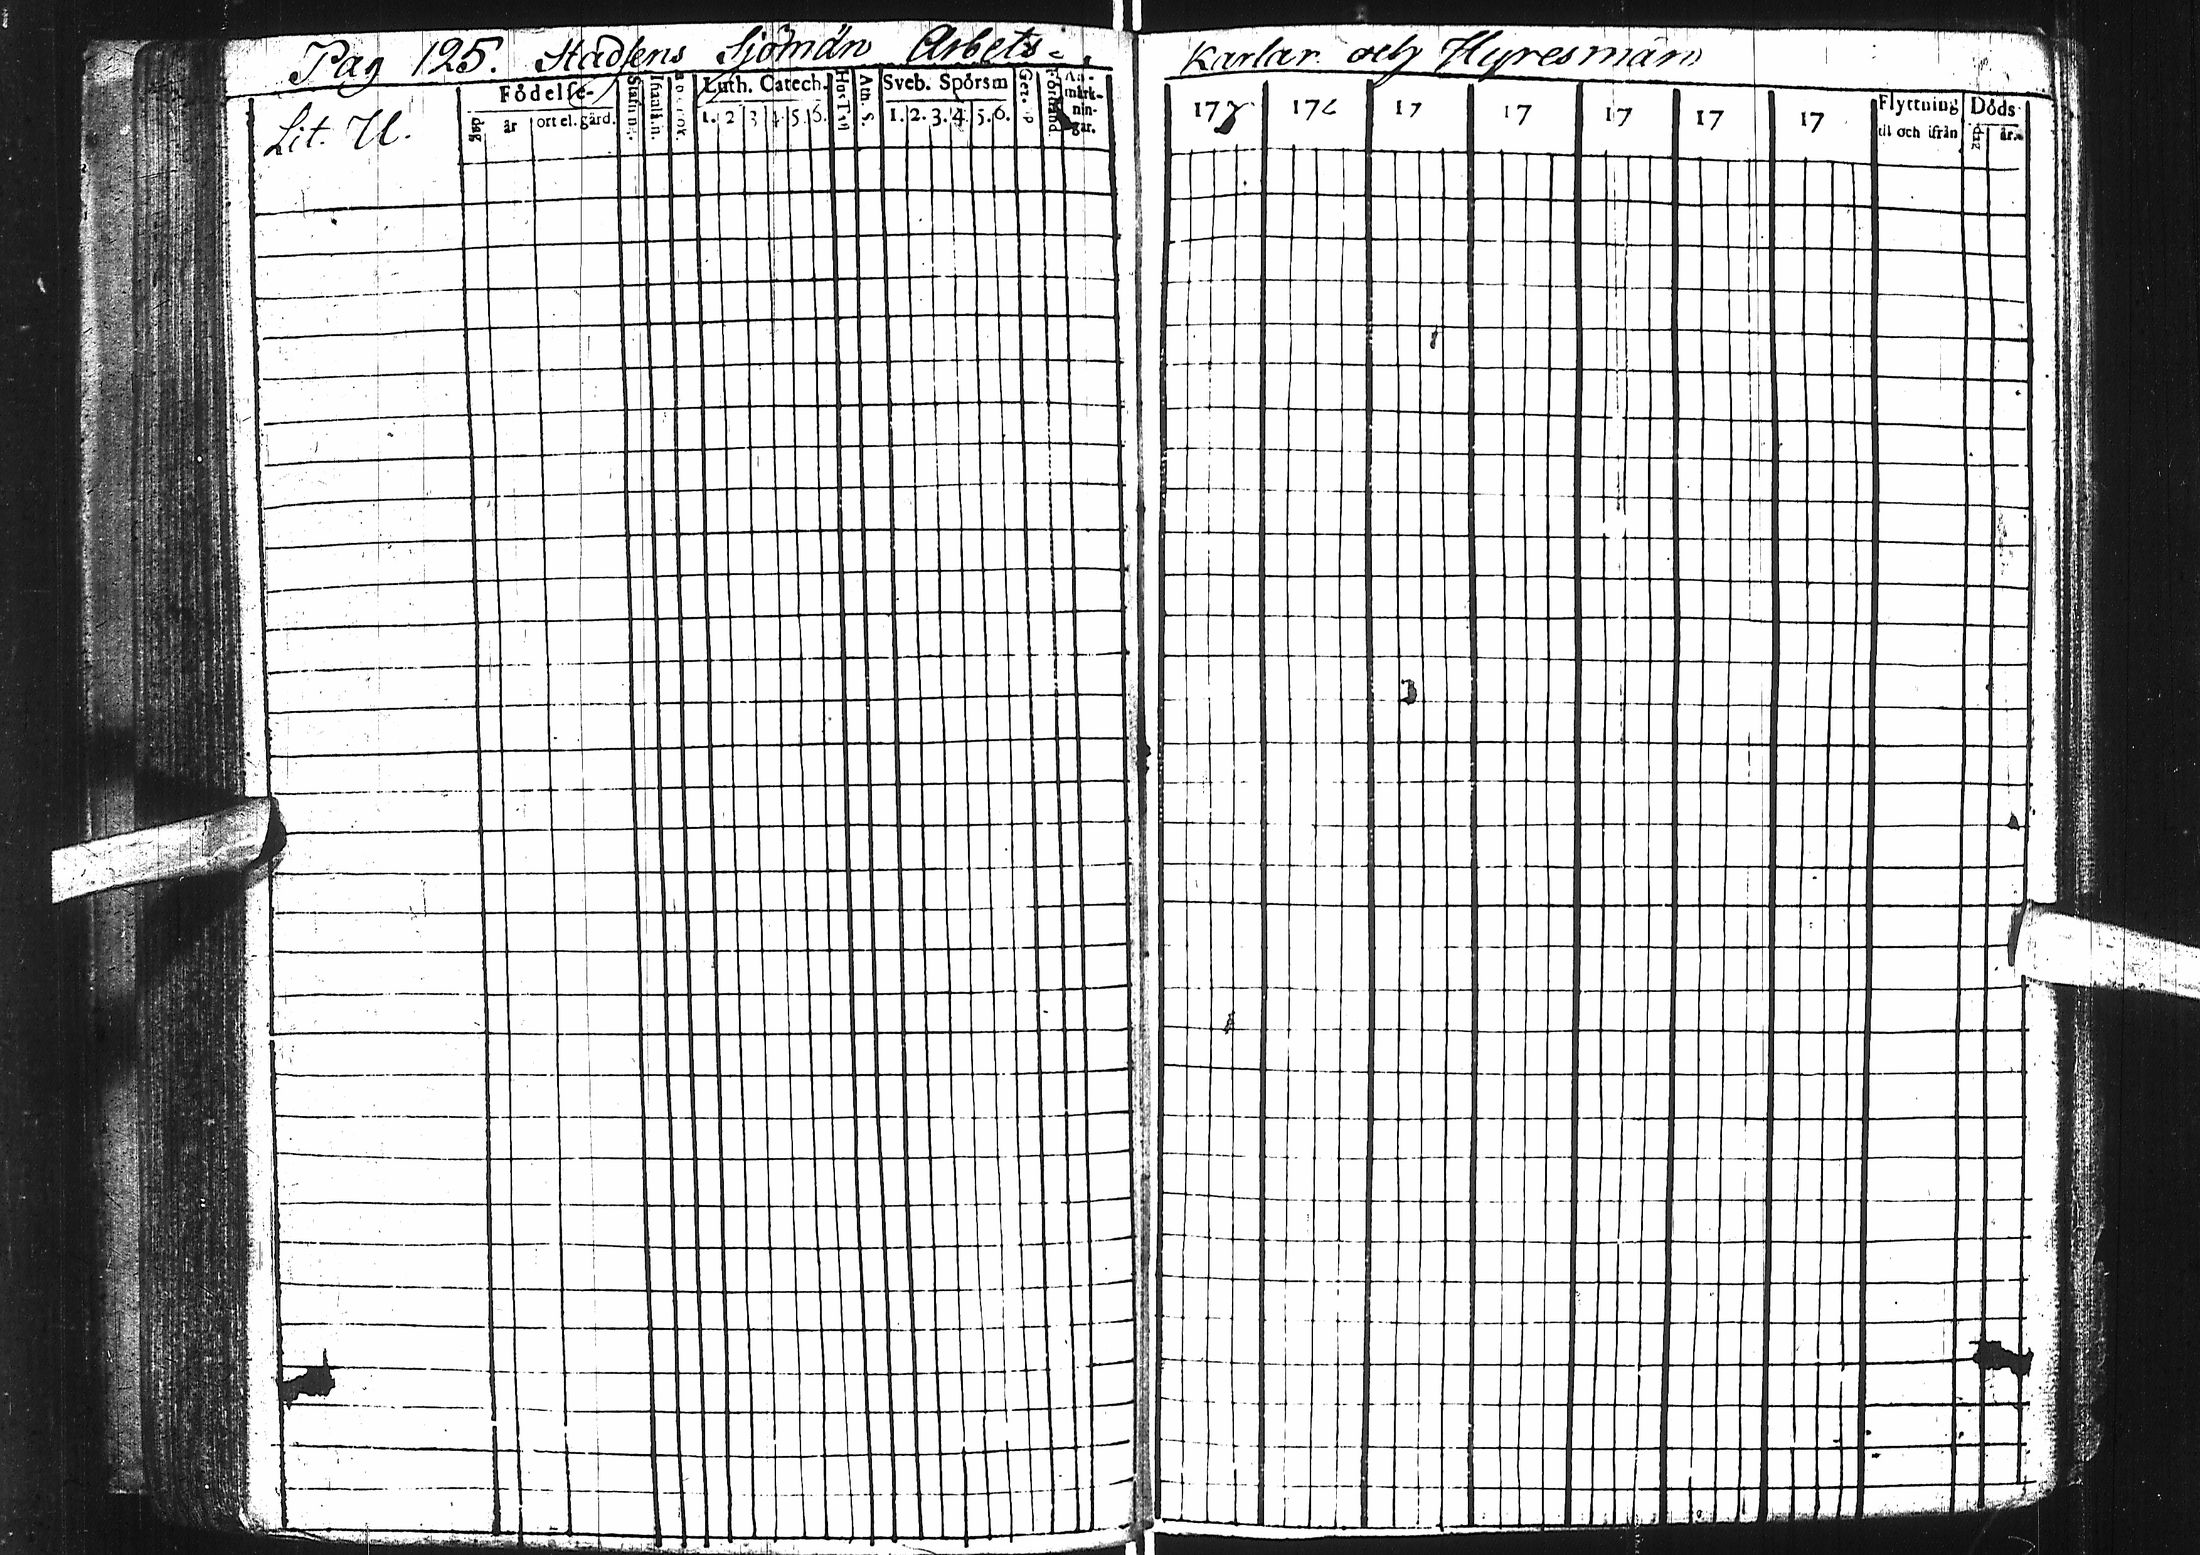 Pag 125. Stadsens Sjömän Arbets=
Lit. U.
Födelse-
dag år ort el. gård.
Luth. Catech.
1. 2 3 4. 5. 6.
Hust.
Ath. S.
Sveb. Spörsm
1. 2. 3. 4. 5. 6.
An-
märk-
nin-
gar.
Karlar och Hyresmän
177 176 17 17 17 17 17
Flyttning
til och ifrån
Döds
dag år.